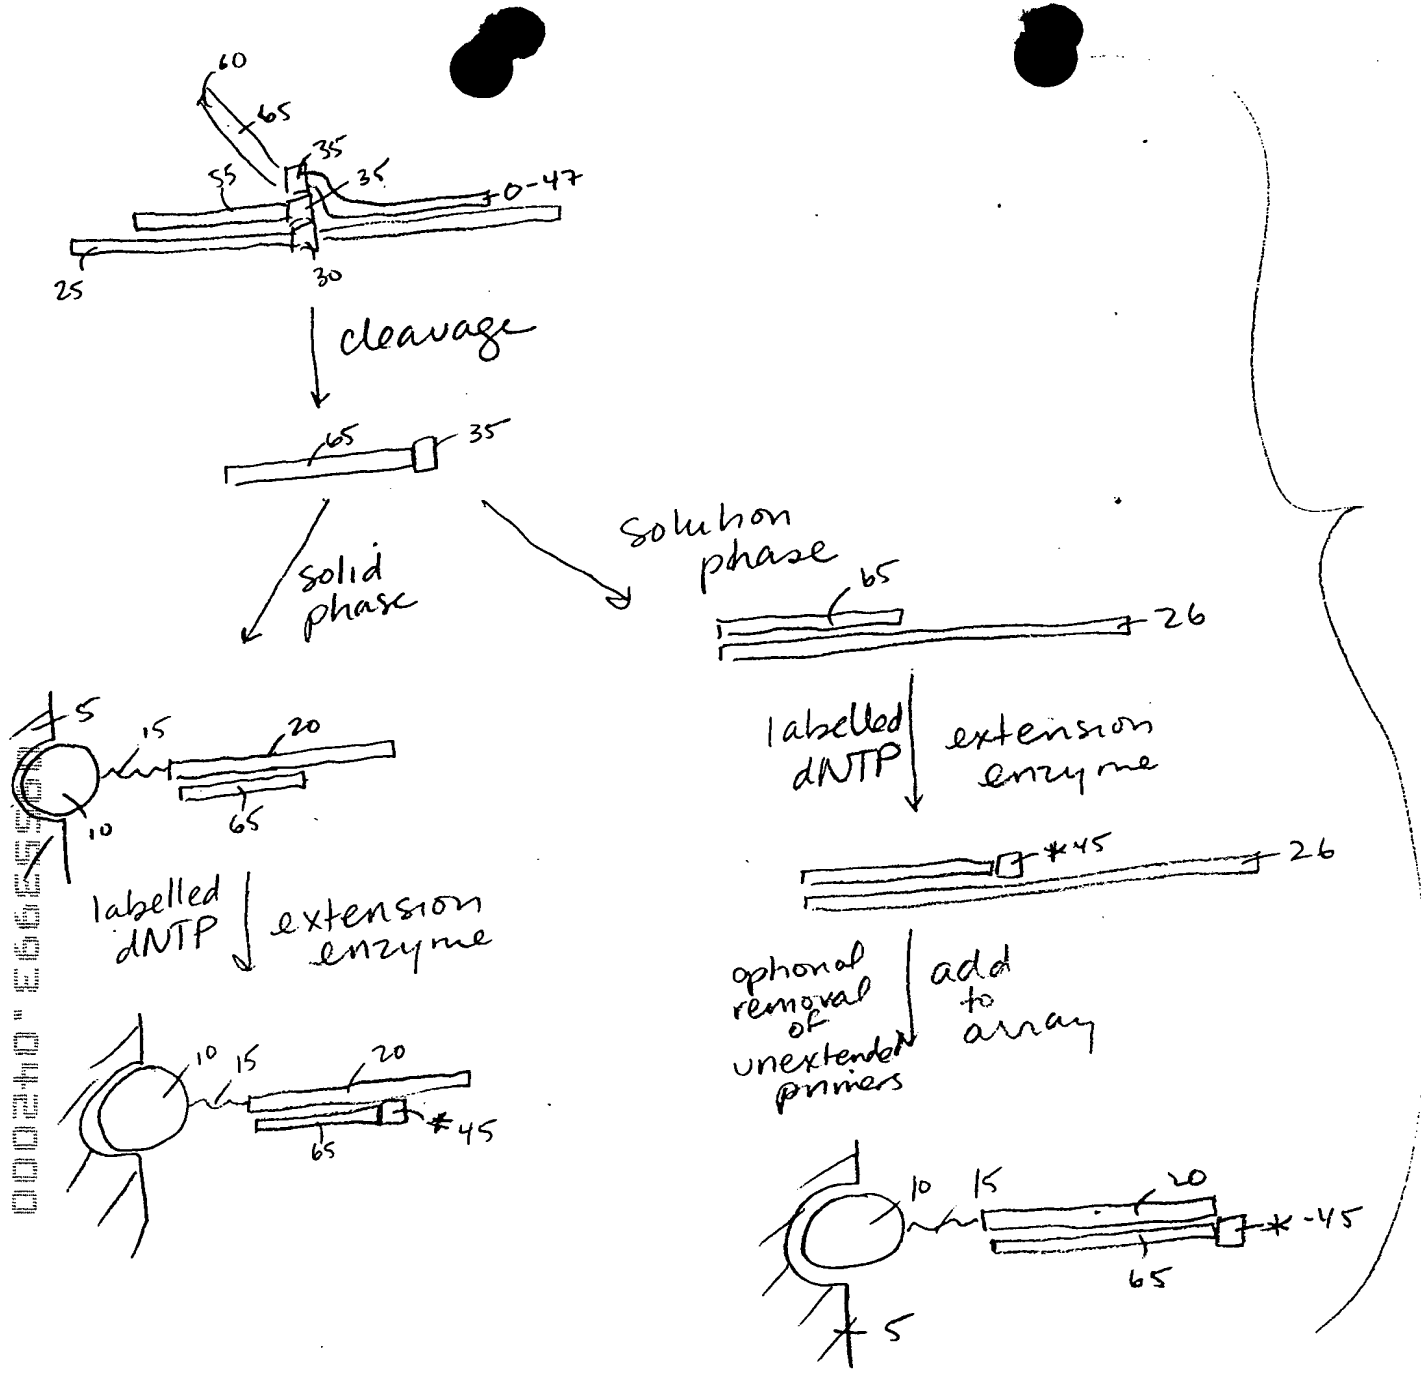 60
65
35
55
35
0-47
25
30
cleavage
65
35
solid
phase
solution
phase
65
26
5
15
20
10
65
labelled
dNTP
extension
enzyme
labelled
dNTP
extension
enzyme
*45
26
optional
removal
of
unextended
primers
add
to
array
10
15
20
*45
65
10
15
20
*-45
65
5